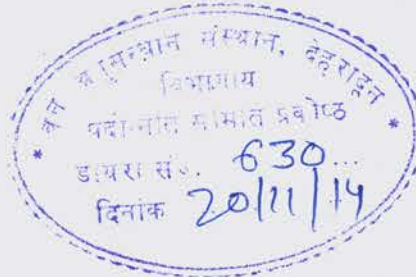 वन अनुसन्धान संस्थान, देहरादून
विभागीय
पदोन्नति समिति प्रकोष्ठ
डायरी सं. 630...
दिनांक 20/11/14